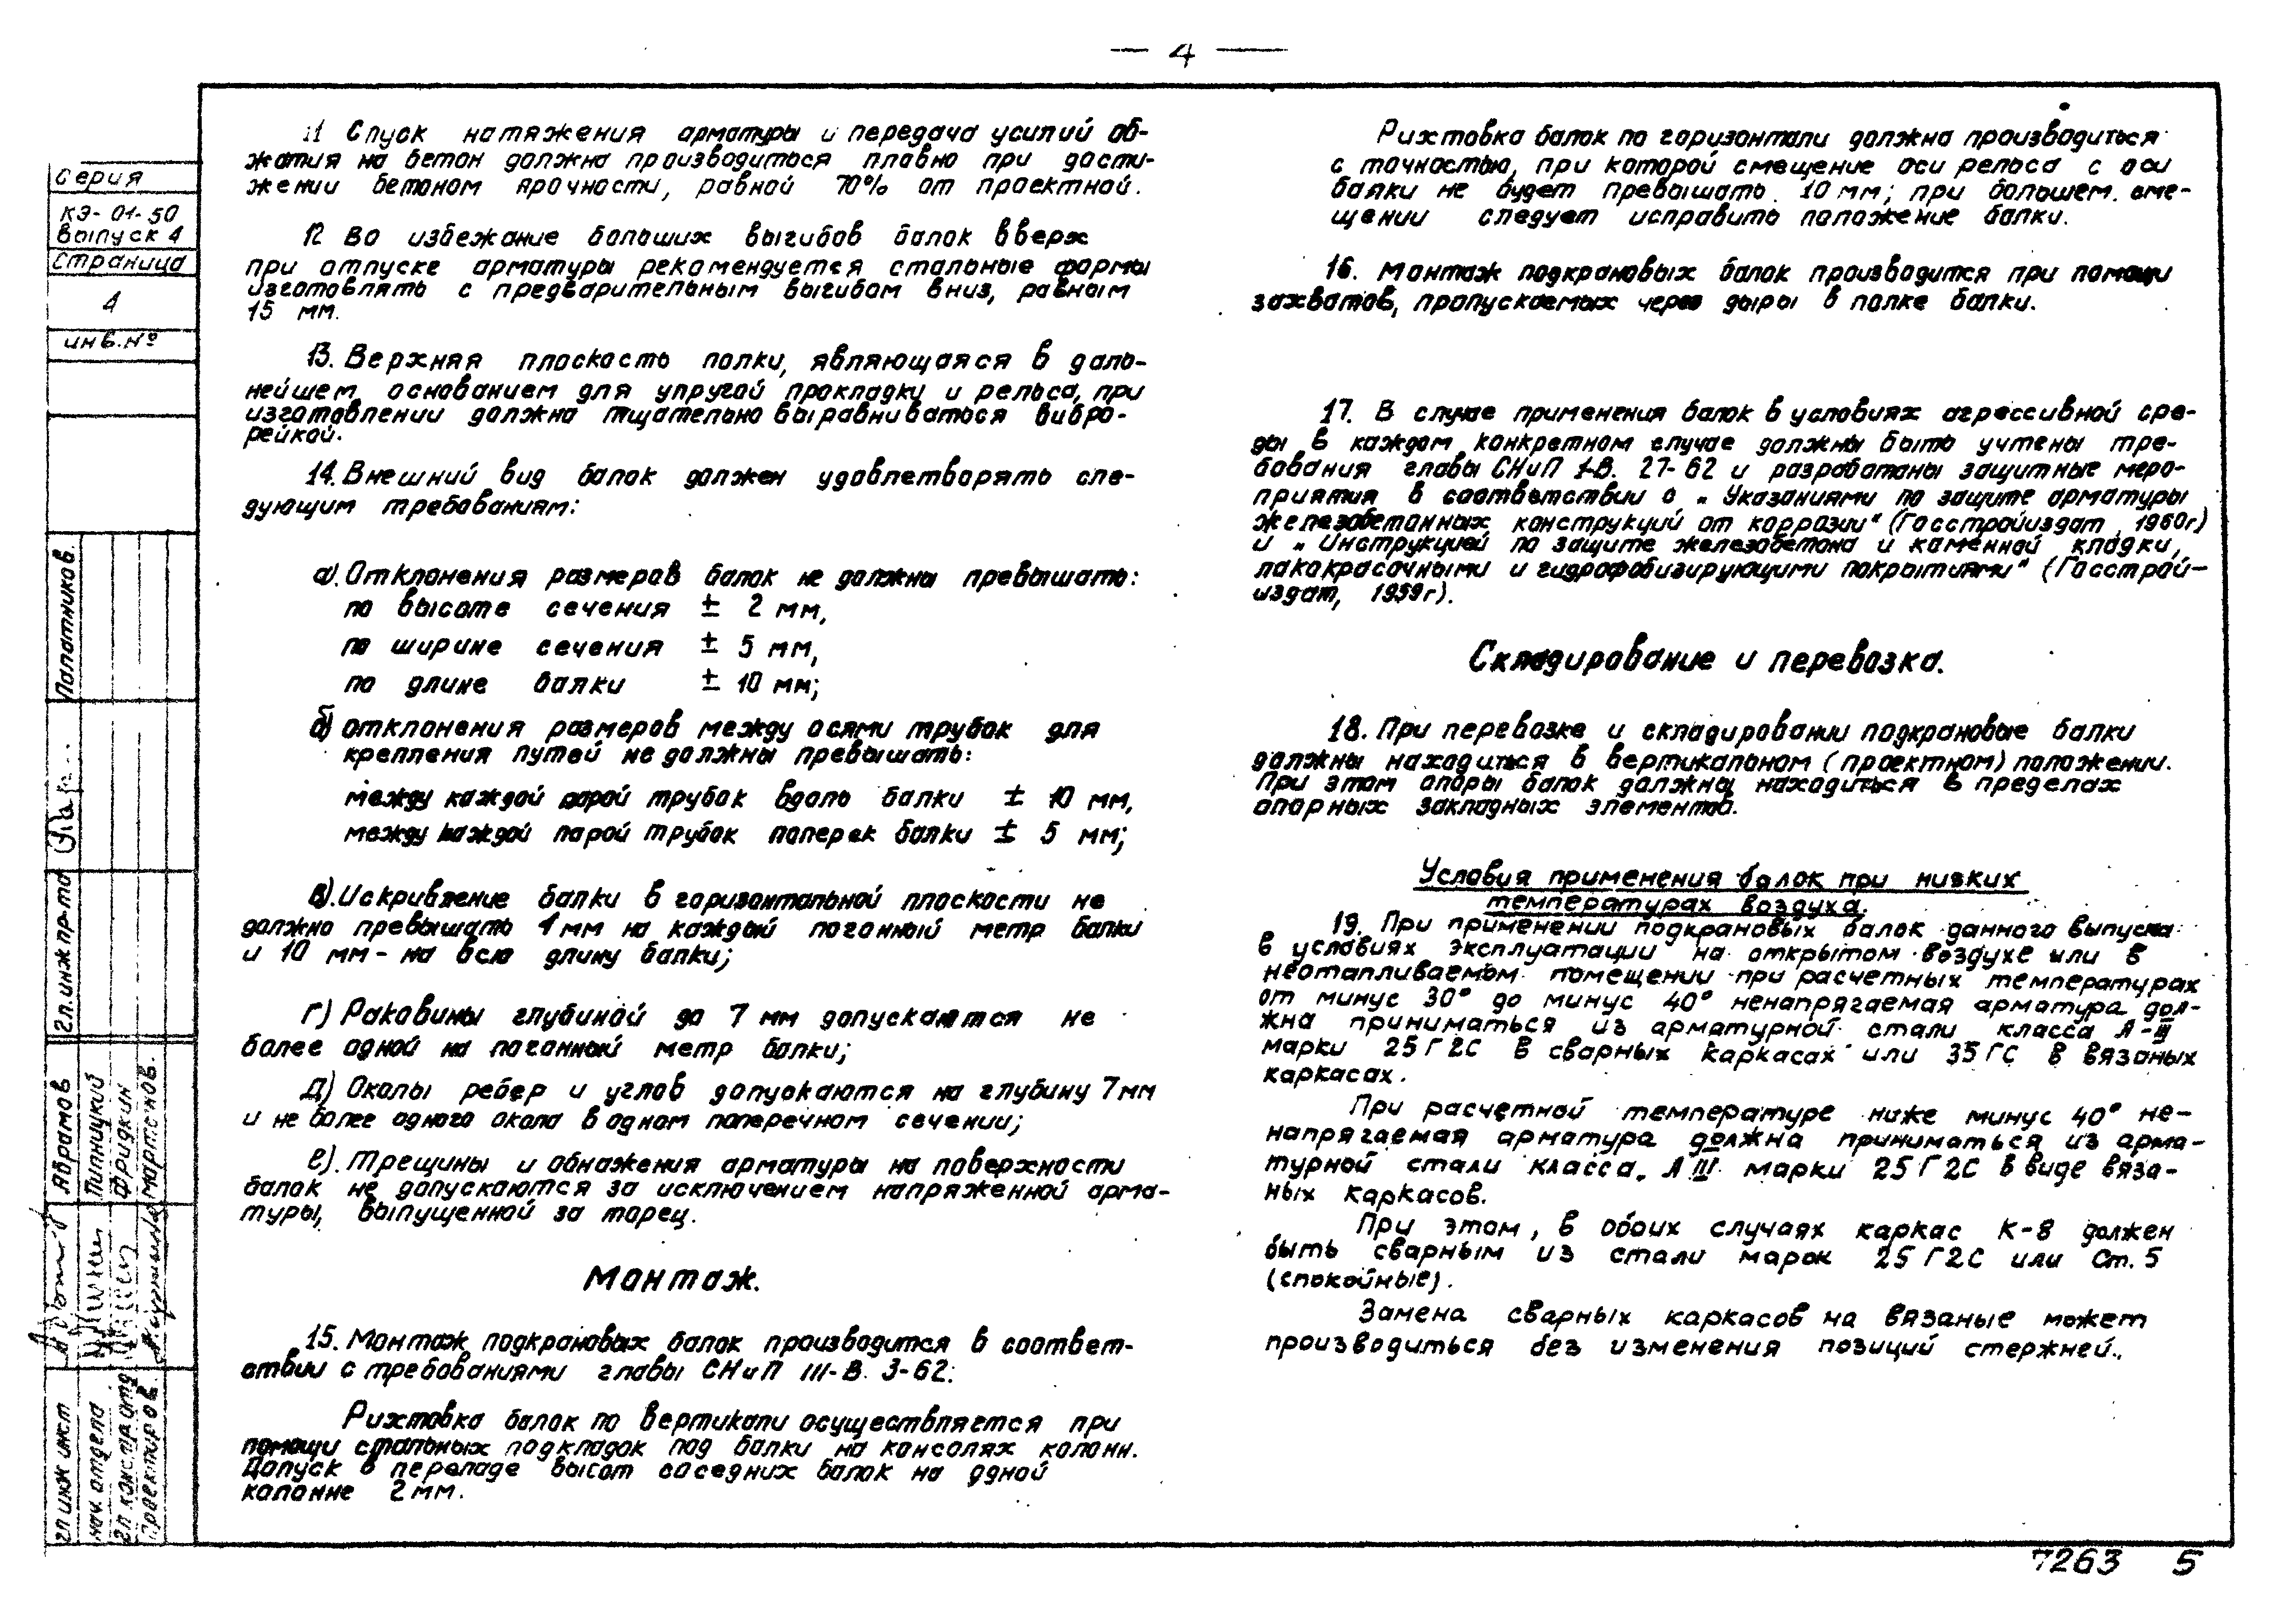 — 4 —
Серия
КЭ-01-50
Выпуск 4
Страница
4
инв. №
Лопатников
гл. инж. пр-та
Абрамов
Пилницкий
Фридкин
гл инж инст
нач. отдела
гл констр отд
Проектиров.
11 Спуск натяжения арматуры и передача усилий об-
жатия на бетон должна производиться плавно при дости-
жении бетоном прочности, равной 70% от проектной.
12 Во избежание больших выгибов балок вверх
при отпуске арматуры рекомендуется стальные формы
изготовлять с предварительным выгибом вниз, равным
15 мм.
13. Верхняя плоскость полки, являющаяся в даль-
нейшем основанием для упругой прокладки и рельса, при
изготовлении должна тщательно выравниваться вибро-
рейкой.
14. Внешний вид балок должен удовлетворять сле-
дующим требованиям:
а). Отклонения размеров балок не должны превышать:
по высоте сечения ± 2 мм,
по ширине сечения ± 5 мм,
по длине балки ± 10 мм;
б) отклонения размеров между осями трубок для
крепления путей не должны превышать:
между каждой парой трубок вдоль балки ± 10 мм,
между каждой парой трубок поперек балки ± 5 мм;
в). Искривление балки в горизонтальной плоскости не
должно превышать 1 мм на каждый погонный метр балки
и 10 мм - на всю длину балки;
г) Раковины глубиной до 7 мм допускаются не
более одной на погонный метр балки;
д) Околы ребер и углов допускаются на глубину 7 мм
и не более одного окола в одном поперечном сечении;
е). Трещины и обнажения арматуры на поверхности
балок не допускаются за исключением напряженной арма-
туры, выпущенной за торец.
Монтаж.
15. Монтаж подкрановых балок производится в соответ-
ствии с требованиями главы СНиП III-В. 3-62:
Рихтовка балок по вертикали осуществляется при
помощи стальных подкладок под балки на консолях колонн.
Допуск в перепаде высот соседних балок на одной
колонне 2 мм.
Рихтовка балок по горизонтали должна производиться
с точностью, при которой смещение оси рельса с оси
балки не будет превышать 10 мм; при большем сме-
щении следует исправить положение балки.
16. Монтаж подкрановых балок производится при помощи
захватов, пропускаемых через дыры в полке балки.
17. В случае применения балок в условиях агрессивной сре-
ды в каждом конкретном случае должны быть учтены тре-
бования главы СНиП I-В. 27-62 и разработаны защитные меро-
приятия в соответствии с „Указаниями по защите арматуры
железобетонных конструкций от коррозии" (Госстройиздат, 1960г)
и „Инструкцией по защите железобетона и каменной кладки,
лакокрасочными и гидрофобизирующими покрытиями" (Госстрой-
издат, 1959г).
Складирование и перевозка.
18. При перевозке и складировании подкрановые балки
должны находиться в вертикальном (проектном) положении.
При этом опоры балок должны находиться в пределах
опорных закладных элементов.
Условия применения балок при низких
температурах воздуха.
19. При применении подкрановых балок данного выпуска
в условиях эксплуатации на открытом воздухе или в
неотапливаемом помещении при расчетных температурах
от минус 30° до минус 40° ненапрягаемая арматура дол-
жна приниматься из арматурной стали класса А-III
марки 25Г2С в сварных каркасах или 35ГС в вязаных
каркасах.
При расчетной температуре ниже минус 40° не-
напрягаемая арматура должна приниматься из арма-
турной стали класса А III марки 25Г2С в виде вяза-
ных каркасов.
При этом, в обоих случаях каркас К-8 должен
быть сварным из стали марок 25Г2С или Ст. 5
(спокойные).
Замена сварных каркасов на вязаные может
производиться без изменения позиций стержней.
7263 5